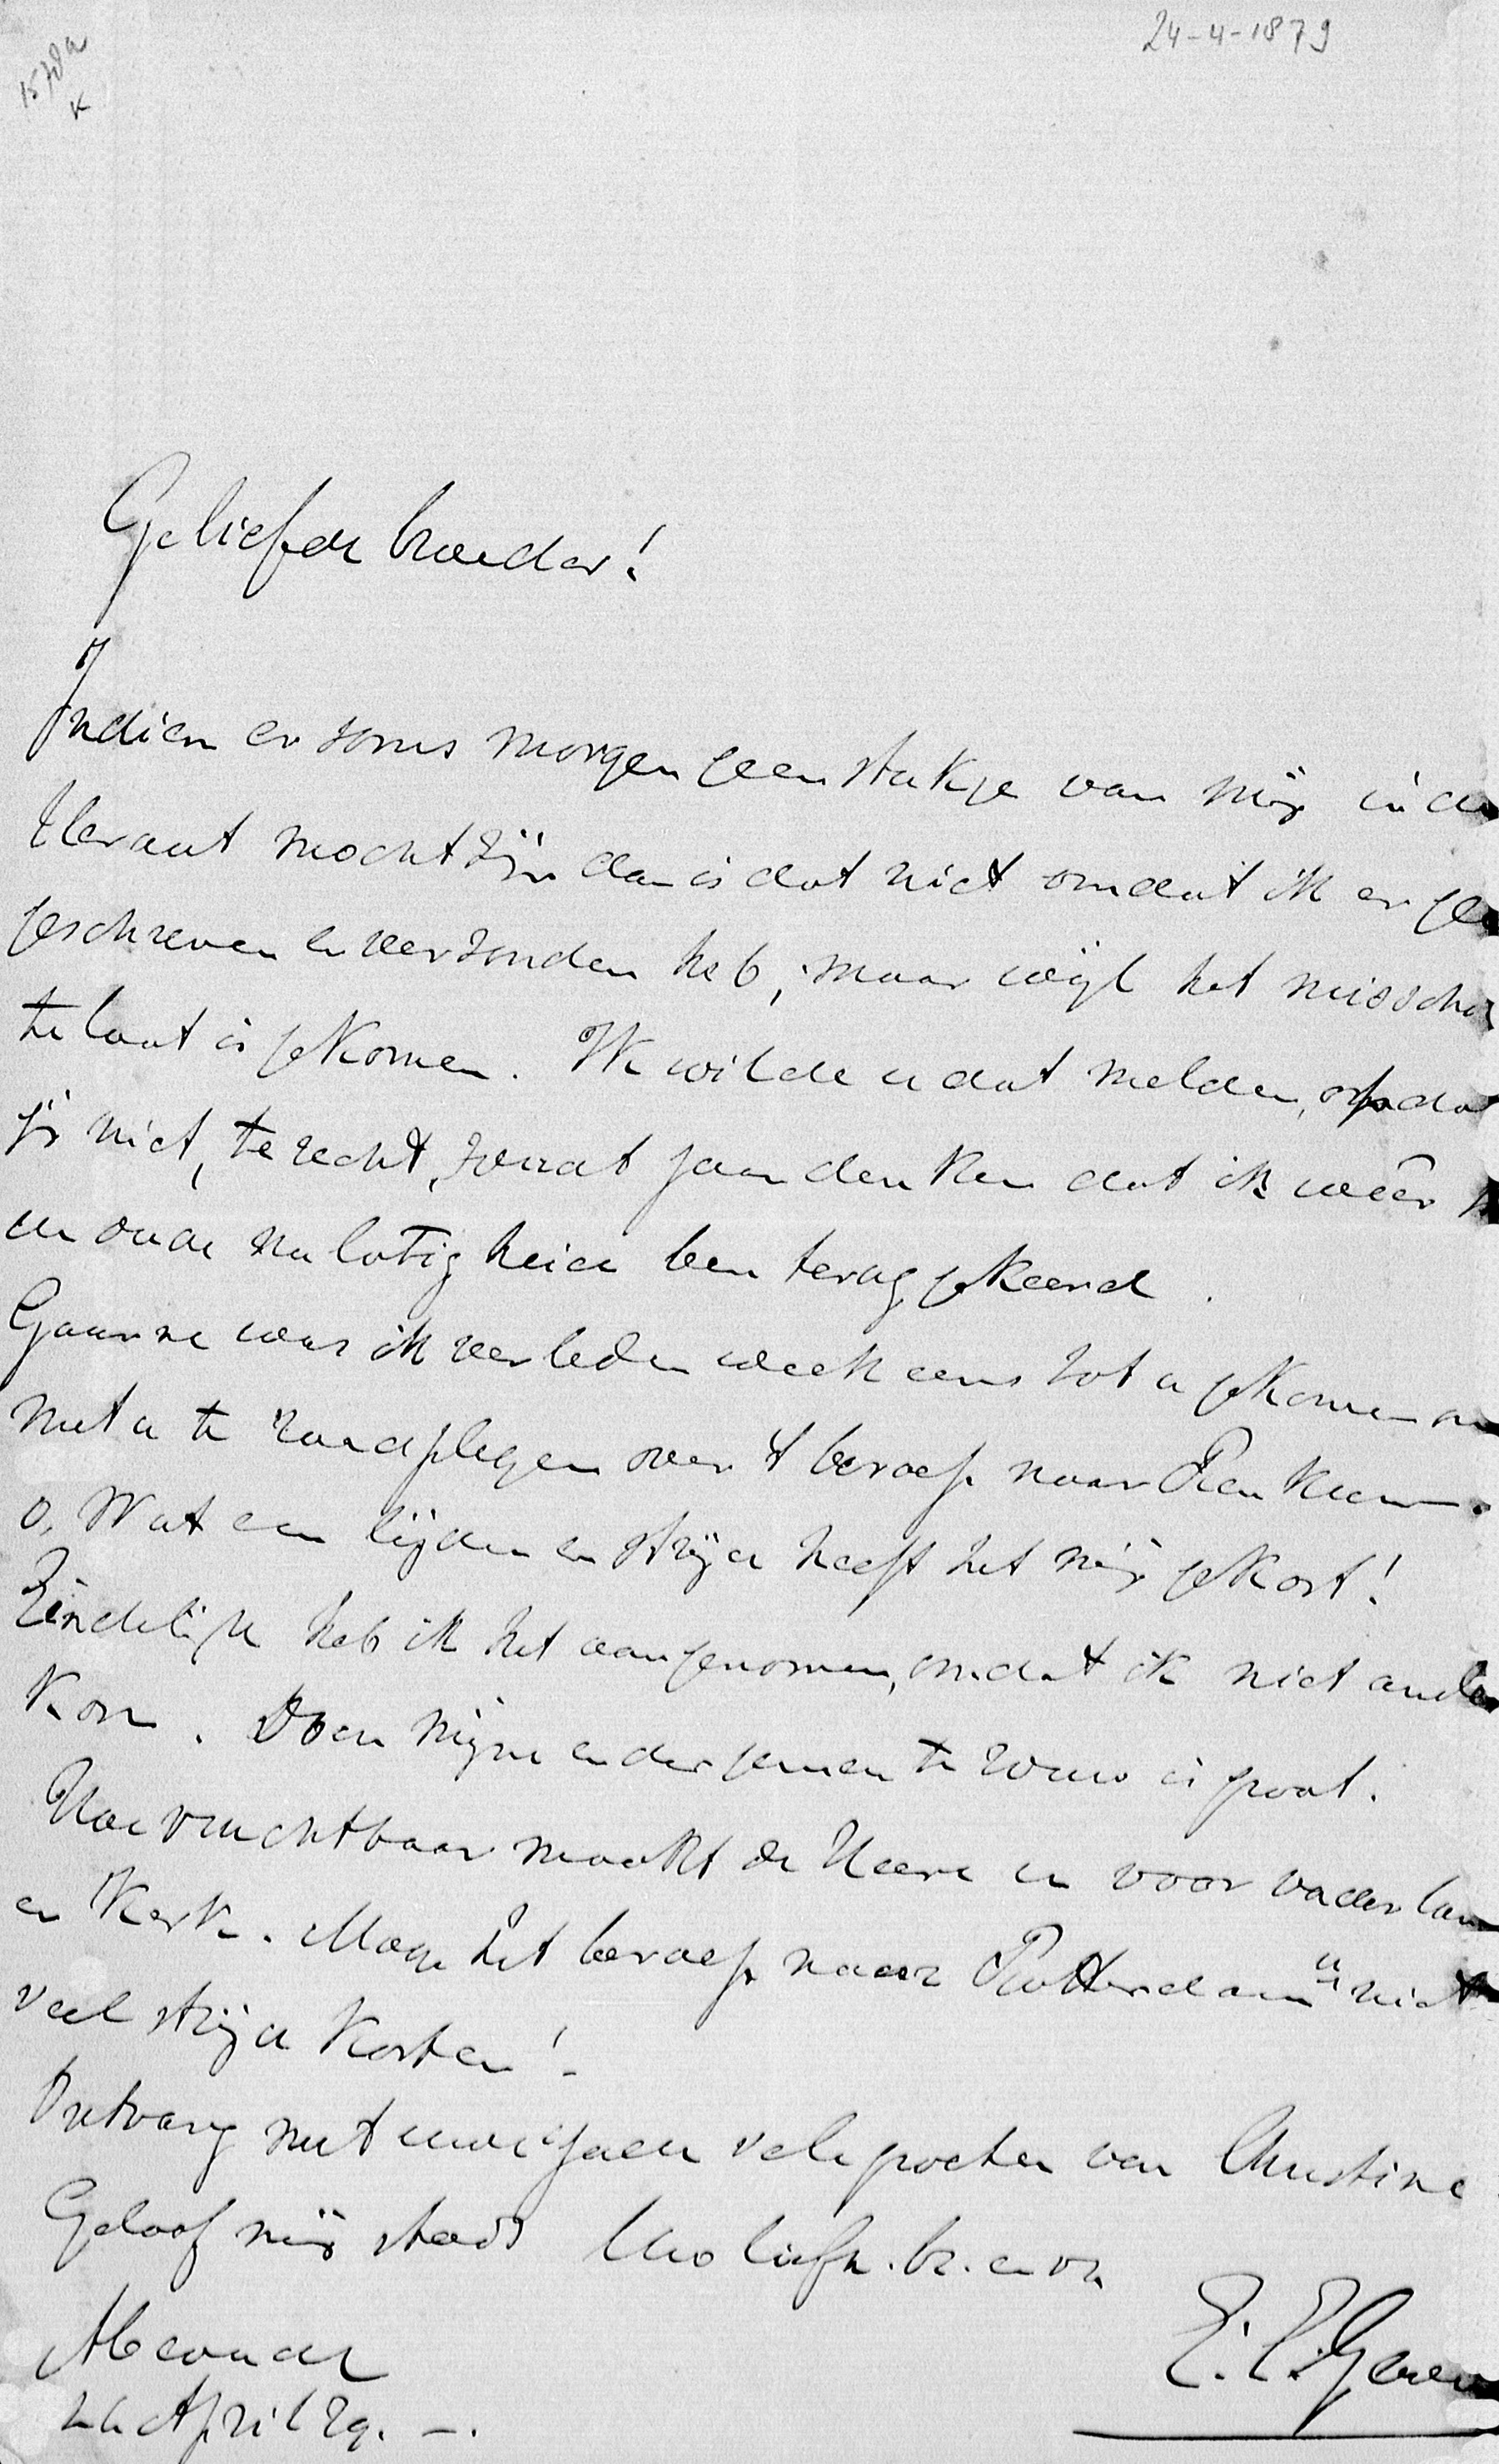 24-4-1879
Geliefde broeder!
Indien er soms morgen geen stukje van mij in de
Heraut mocht zijn dan is dat niet omdat ik er geen
geschreven en verzonden heb, maar wijl het misschien
te laat is gekomen. Ik wilde u dat melden, opdat
gij niet, te recht, zoudt gaan denken dat ik weêr
de oude nalatigheid ben teruggekeerd.
Gaarne was ik verleden week eens tot u gekomen om
met u te raadplegen over 't beroep naar
o, Wat een lijden en strijd heeft het mij gekost!
Eindelijk heb ik het aangenomen, omdat ik niet anders
kon. Doch mijne en der gemeente rouw is groot.
Hoe vruchtbaar maakt de Heere u voor vaderland
en Kerk. Moge het beroep naar Rotterdam u niet
veel strijd kosten!
Ontvang met uwe gade vele groeten van Christine.
Geloof mij steeds Uw liefh. br. en vr.
E. E. Gewin
24 April 79.